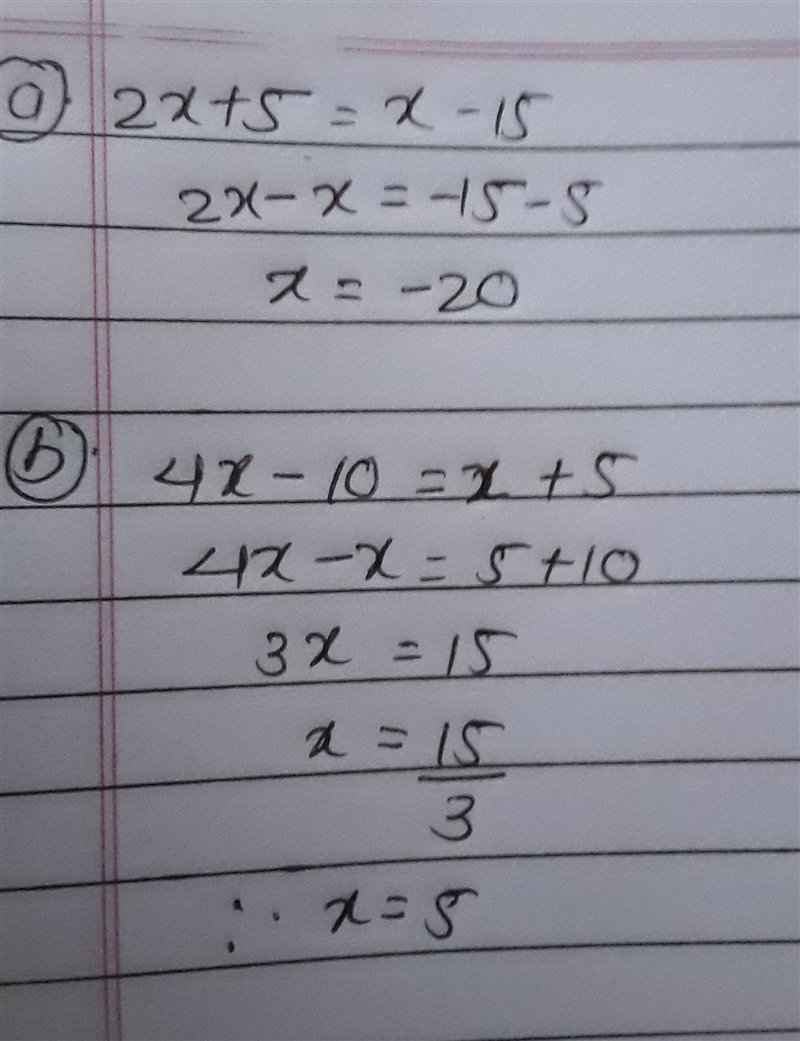 a) 2x+5 = x-15
2x-x = -15-5
x = -20
b) 4x-10 = x+5
4x-x = 5+10
3x = 15
x = 15/3
∴ x = 5